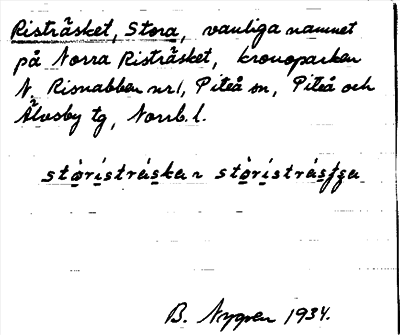 Risträsket, Stora, vanliga namnet
på Norra Risträsket, kronoparken
N. Risnabben nr 1, Piteå sn, Piteå och
Älvsby tg, Norrb. l.
B. Nygren 1934.